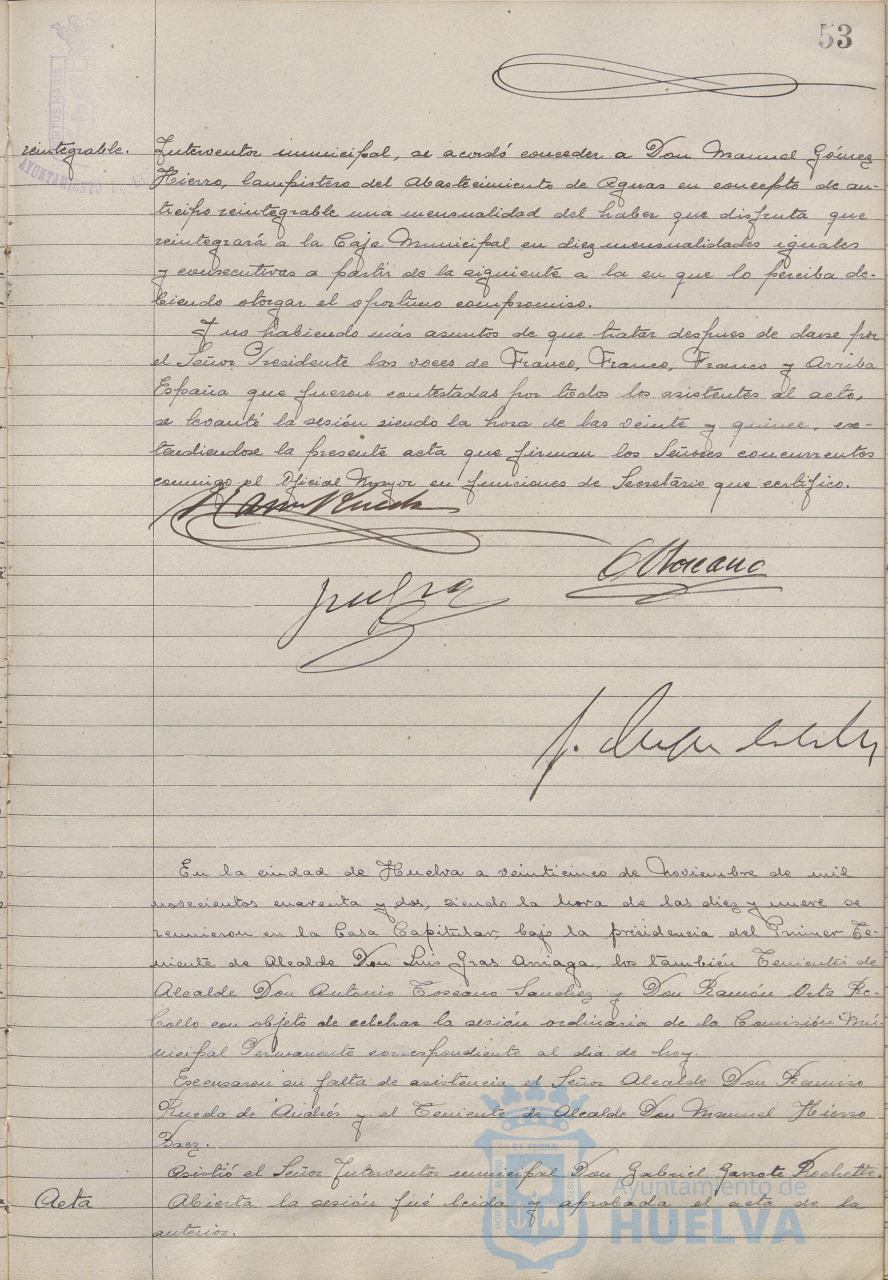 53
reintegrable.
Interventor municipal, se acordó conceder a Don Manuel Gómez
Hierro, lampistero del Abastecimiento de Aguas en concepto de an-
ticipo reintegrable una mensualidad del haber que disfruta que
reintegrará a la Caja Municipal en diez mensualidades iguales
y consecutivas a partir de la siguiente a la en que lo perciba de-
biendo otorgar el oportuno compromiso.
Y no habiendo más asuntos de que tratar despues de darse por
el Señor Presidente las voces de Franco, Franco, Franco y Arriba
España que fueron contestadas por todos los asistentes al acto,
se levantó la sesión siendo la hora de las veinte y quince, ex-
tendiendose la presente acta que firman los Señores concurrentes
conmigo el Oficial Mayor en funciones de Secretario que certifico.
Rueda
Toscano
En la ciudad de Huelva a veinticinco de Noviembre de mil
novecientos cuarenta y dos, siendo la hora de las diez y nueve se
reunieron en la Casa Capitular, bajo la presidencia del Primer Te-
niente de Alcalde Don Luis Gras Arriaga, los también Tenientes de
Alcalde Don Antonio Toscano Sanchez y Don Ramón Orta Re-
bollo con objeto de celebrar la sesión ordinaria de la Comisión Mu-
nicipal Permanente correspondiente al dia de hoy.
Excusaron su falta de asistencia el Señor Alcalde Don Ramiro
Rueda de Andrés y el Teniente de Alcalde Don Manuel Hierro
Baez.
Asistió el Señor Interventor municipal Don Gabriel Garrote Rochette.
Acta
Abierta la sesión fué leida y aprobada el acta de la
anterior.
AYUNTAMIENTO DE
Ayuntamiento de
HUELVA